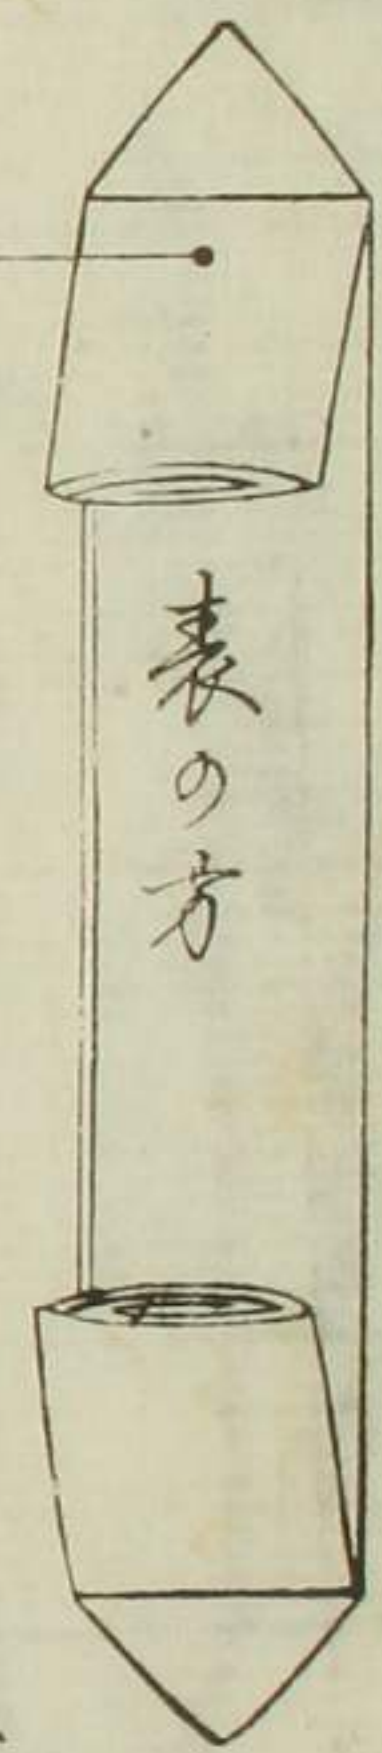 表の方